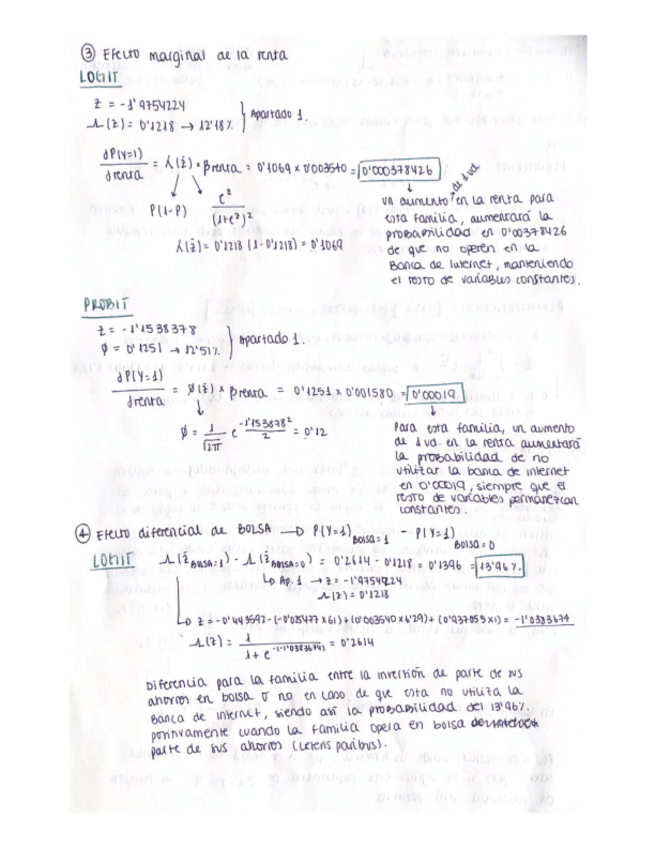 ③ Efecto marginal de la renta
LOGIT
z = -1'9754224
Λ(z) = 0'1218 → 12'18%
} Apartado 1.
dP(Y=1)/drenta = λ(ẑ) * βrenta = 0'1069 x 0'003540 = 0'000378426
P(1-P) e^z/(1+e^z)²
λ(ẑ) = 0'1218 (1-0'1218) = 0'1069
un aumento de 1 ud. en la renta para
esta familia, aumentará la
probabilidad en 0'00378426
de que no operen en la
Banca de Internet, manteniendo
el resto de variables constantes.
PROBIT
z = -1'1538378
ϕ = 0'1251 → 12'51%
} Apartado 1.
dP(Y=1)/drenta = ϕ(ẑ) x βrenta = 0'1251 x 0'001580 = 0'00019
ϕ = 1/√2π e^-1'153878²/2 = 0'12
Para esta familia, un aumento
de 1 ud. en la renta aumentará
la probabilidad de no
utilizar la banca de internet
en 0'00019, siempre que el
resto de variables permanezcan
constantes.
④ Efecto diferencial de BOLSA → P(Y=1) Bolsa=1 - P(Y=1) Bolsa=0
LOGIT Λ(ẑ BOLSA=1) - Λ(ẑ BOLSA=0) = 0'2614 - 0'1218 = 0'1396 = 13'96%
↳ Ap. 1 → z = -1'9754224
Λ(z) = 0'1218
↳ z = -0'443592 - (-0'025477 x 61) + (0'003540 x 6'29) + (0'937055 x 1) = -1'0383674
Λ(z) = 1/1+e^-(-1'0383674) = 0'2614
Diferencia para la familia entre la inversión de parte de sus
ahorros en bolsa o no en caso de que esta no utiliza la
Banca de internet, siendo así la probabilidad del 13'96%.
positivamente cuando la familia opera en bolsa
parte de sus ahorros (Ceteris paribus).